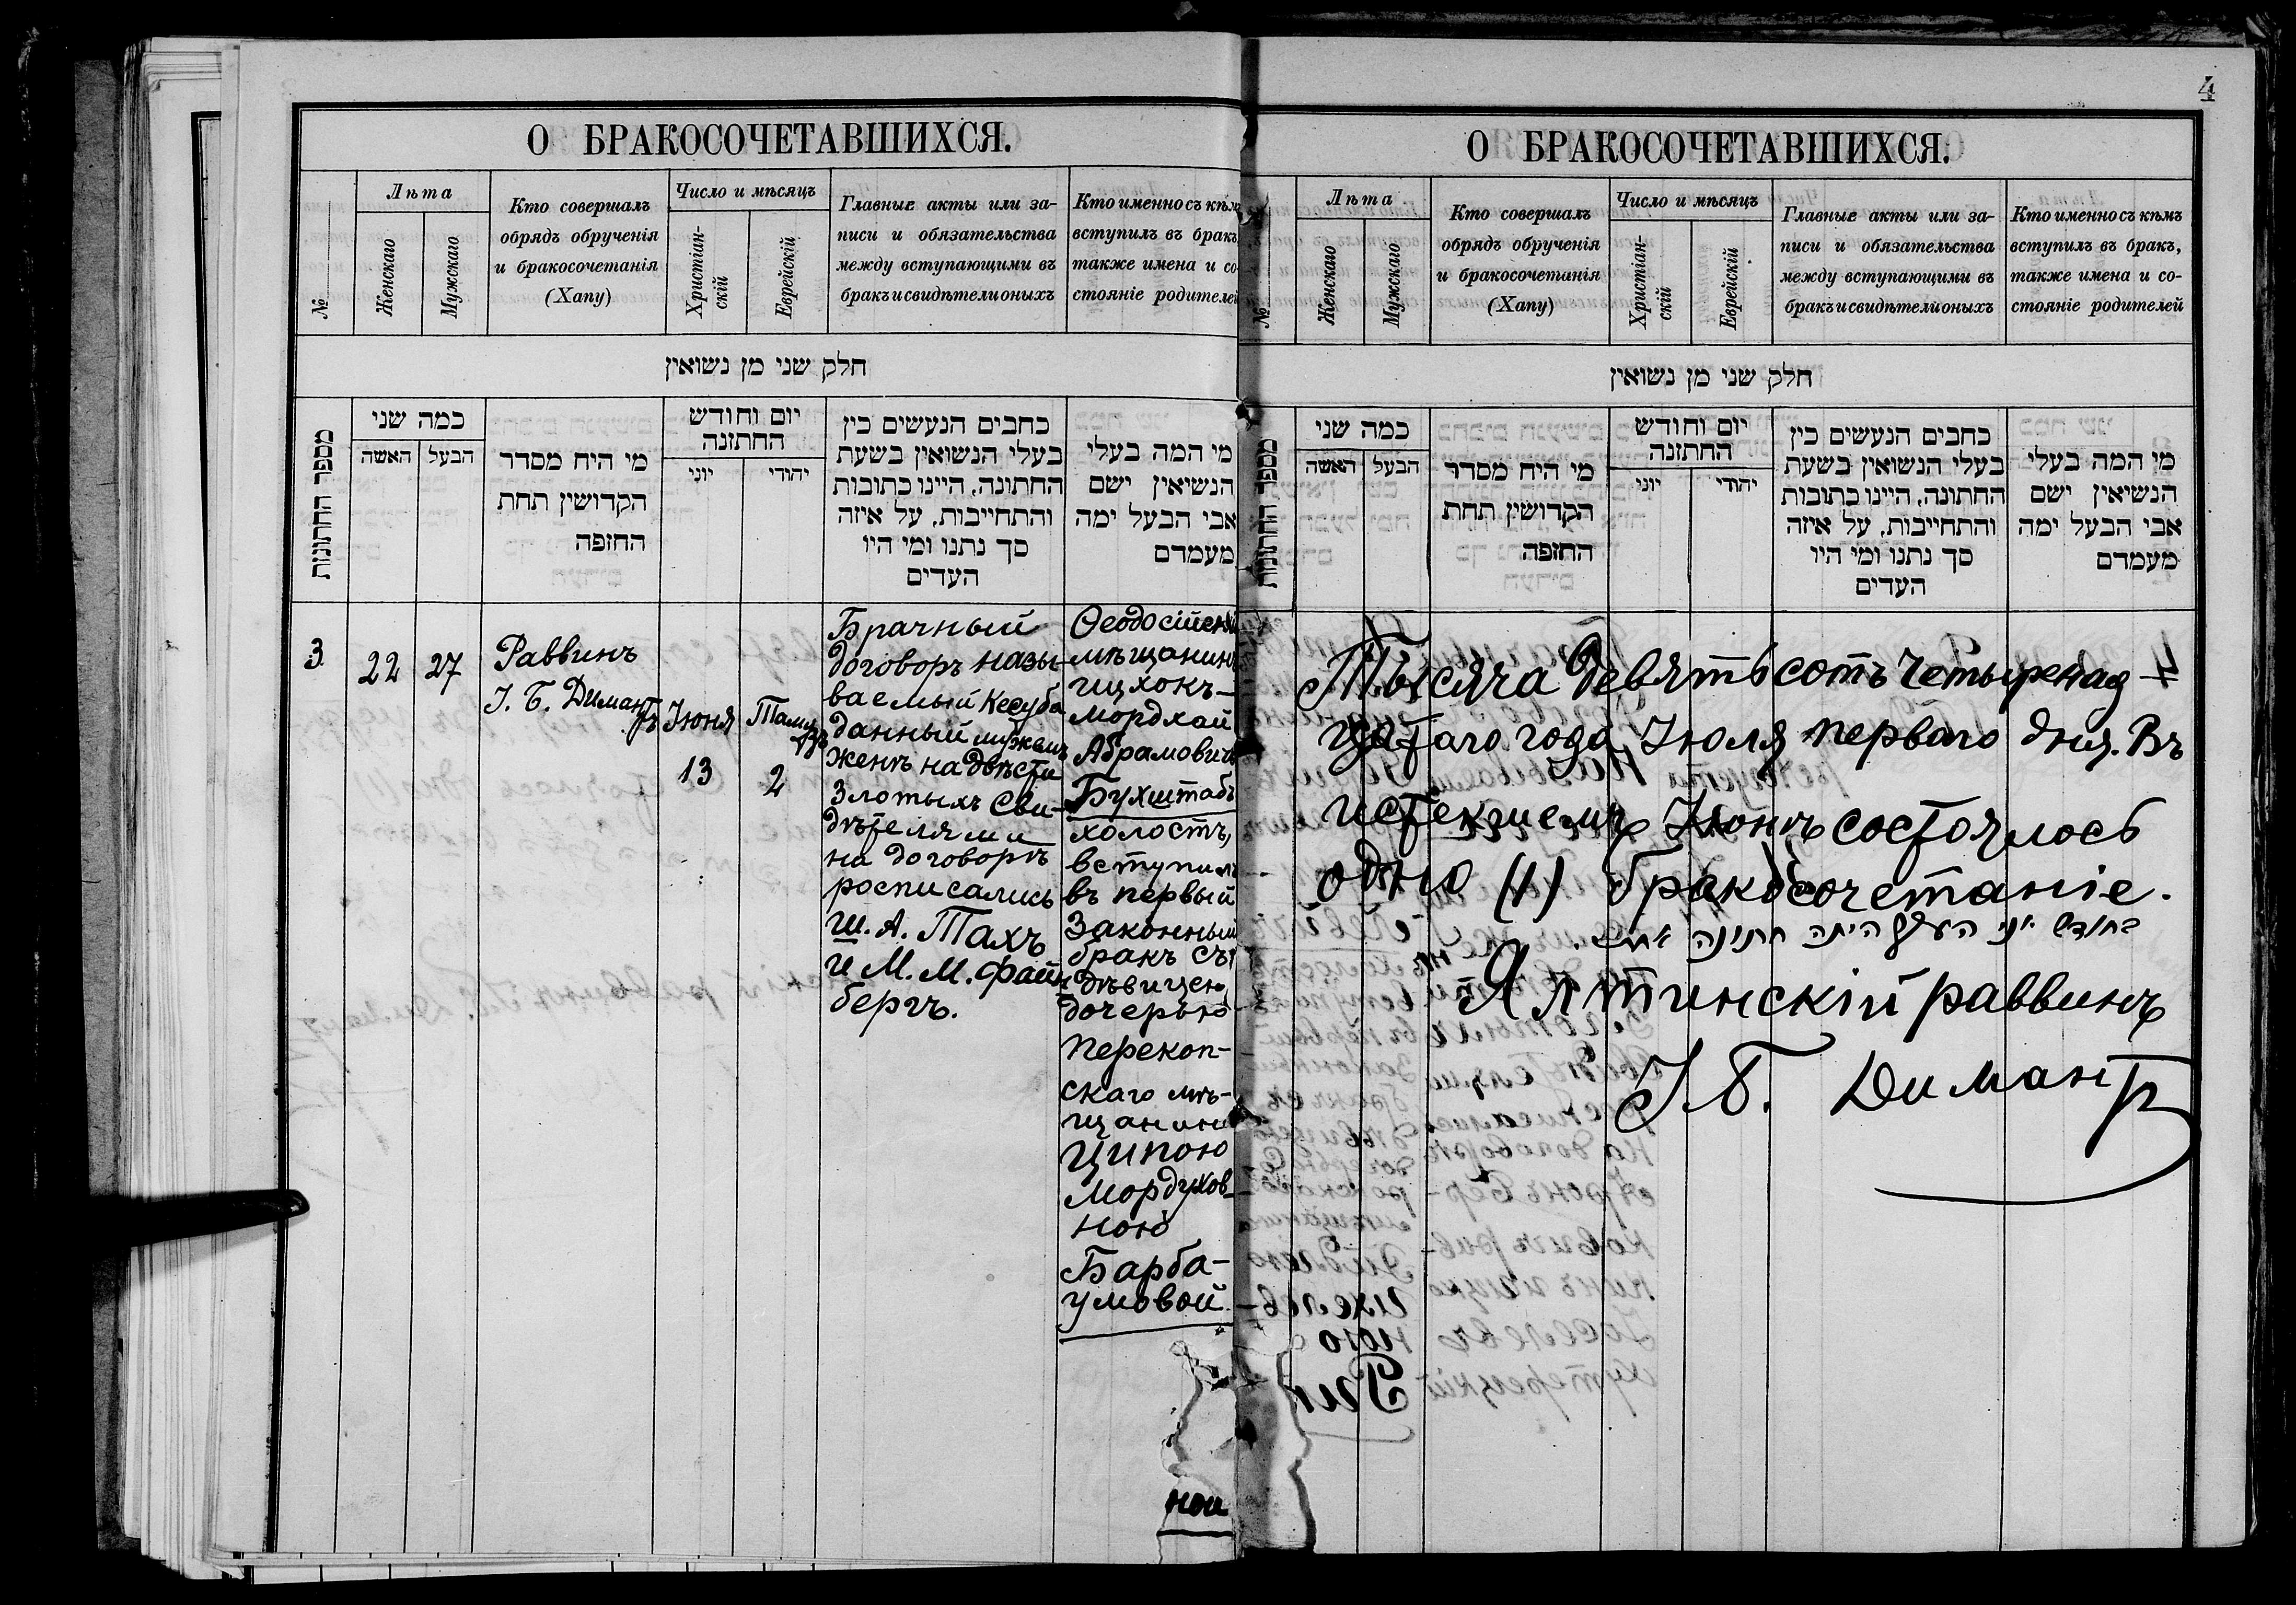 О БРАКОСОЧЕТАВШИХСЯ.
№
Лѣта
Женскаго
Мужскаго
Кто совершалъ
обрядъ обрученія
и бракосочетанія
(Хапу)
Число и мѣсяцъ
Христіан-
скій
Еврейскій
Главные акты или за-
писи и обязательства
между вступающими въ
бракъ и свидѣтели оныхъ
Кто именно съ кѣмъ
вступилъ въ бракъ
также имена и со-
стояніе родителей
חלק שני מן נשואין
מספר החתונות
כמה שני
האשה
הבעל
מי היה מסדר
הקדושין תחת
החופה
יום וחודש
החתונה
יוני
יהודי
כתבים הנעשים בין
בעלי הנשואין בשעת
החתונה, היינו כתובות
והתחייבות, על איזה
סך נתנו ומי היו
העדים
מי המה בעלי
הנשיאין ישם
אבי הבעל ימה
מעמדם
3
22
27
Раввинъ
І. Б. Димантъ
Іюня
13
2
Брачный
договоръ назы-
ваемый Кесуба
данный мужемъ
женѣ на двѣсти
злотыхъ Сви-
дѣтелями
на договорѣ
росписались
Ш. А. Тахъ
и М. М. Файн-
бергъ.
Ѳеодосійскій
мѣщанинъ
Ицхокъ-
Мордхай
Абрамовичъ
Бухштабъ
холостъ,
вступилъ
въ первый
законный
бракъ съ
дѣвицею
дочерью
Перекоп-
скаго мѣ-
щанина
Ципою
Мордухов-
ною
Барба-
умовой
ной
4
О БРАКОСОЧЕТАВШИХСЯ.
№
Лѣта
Женскаго
Мужскаго
Кто совершалъ
обрядъ обрученія
и бракосочетанія
(Хапу)
Число и мѣсяцъ
Христіан-
скій
Еврейскій
Главные акты или за-
писи и обязательства
между вступающими въ
бракъ и свидѣтели оныхъ
Кто именно съ кѣмъ
вступилъ въ бракъ,
также имена и со-
стояніе родителей
חלק שני מן נשואין
מספר החתונות
כמה שני
האשה
הבעל
מי היה מסדר
הקדושין תחת
החופה
יום וחודש
החתונה
יוני
יהודי
כתבים הנעשים בין
בעלי הנשואין בשעת
החתונה, היינו כתובות
והתחייבות, על איזה
סך נתנו ומי היו
העדים
מי המה בעלי
הנשיאין ישם
אבי הבעל ימה
מעמדם
Тысяча девятьсотъ четырнад-
цатаго года, Іюля перваго дня. Въ
истекшемъ Іюнѣ состоялось
одно (1) бракосочетаніе.
בחודש יוני העבר היתה חתונה אחת.
Ялтинскій раввинъ
І. Б. Димантъ